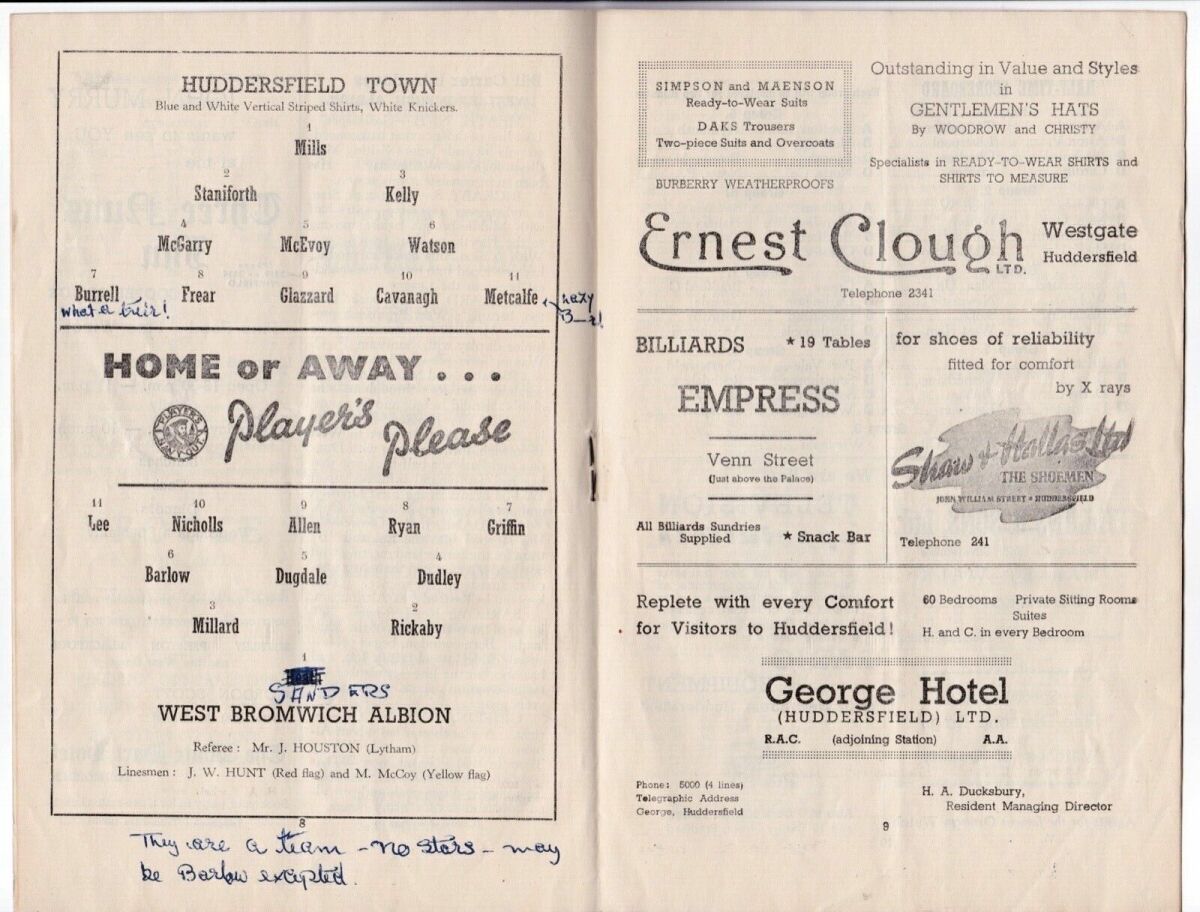 HUDDERSFIELD TOWN
Blue and White Vertical Striped Shirts, White Knickers.
1
Mills
2 3
Staniforth Kelly
4 5 6
McGarry McEvoy Watson
7 8 9 10 11
Burrell Frear Glazzard Cavanagh Metcalfe
what a
Lazy
B—r!
HOME or AWAY . . .
Player's Please
11 10 9 8 7
Lee Nicholls Allen Ryan Griffin
6 5 4
Barlow Dugdale Dudley
3 2
Millard Rickaby
1
SANDERS
WEST BROMWICH ALBION
Referee : Mr. J. HOUSTON (Lytham)
Linesmen : J. W. HUNT (Red flag) and M. McCoy (Yellow flag)
8
They are a team - no stars - may
be Barlow excepted.
SIMPSON and MAENSON
Ready-to-Wear Suits
DAKS Trousers
Two-piece Suits and Overcoats
BURBERRY WEATHERPROOFS
Outstanding in Value and Styles
in
GENTLEMEN'S HATS
By WOODROW and CHRISTY
Specialists in READY-TO-WEAR SHIRTS and
SHIRTS TO MEASURE
Ernest Clough LTD.
Westgate
Huddersfield
Telephone 2341
BILLIARDS ★ 19 Tables
EMPRESS
Venn Street
(Just above the Palace)
All Billiards Sundries
Supplied
★ Snack Bar
for shoes of reliability
fitted for comfort
by X rays
Shaw & Hallas Ltd
THE SHOEMEN
JOHN WILLIAM STREET • HUDDERSFIELD
Telephone 241
Replete with every Comfort
for Visitors to Huddersfield!
60 Bedrooms Private Sitting Rooms
Suites
H. and C. in every Bedroom
George Hotel
(HUDDERSFIELD) LTD.
R.A.C. (adjoining Station) A.A.
Phone: 5000 (4 lines)
Telegraphic Address
George, Huddersfield
H. A. Ducksbury,
Resident Managing Director
9